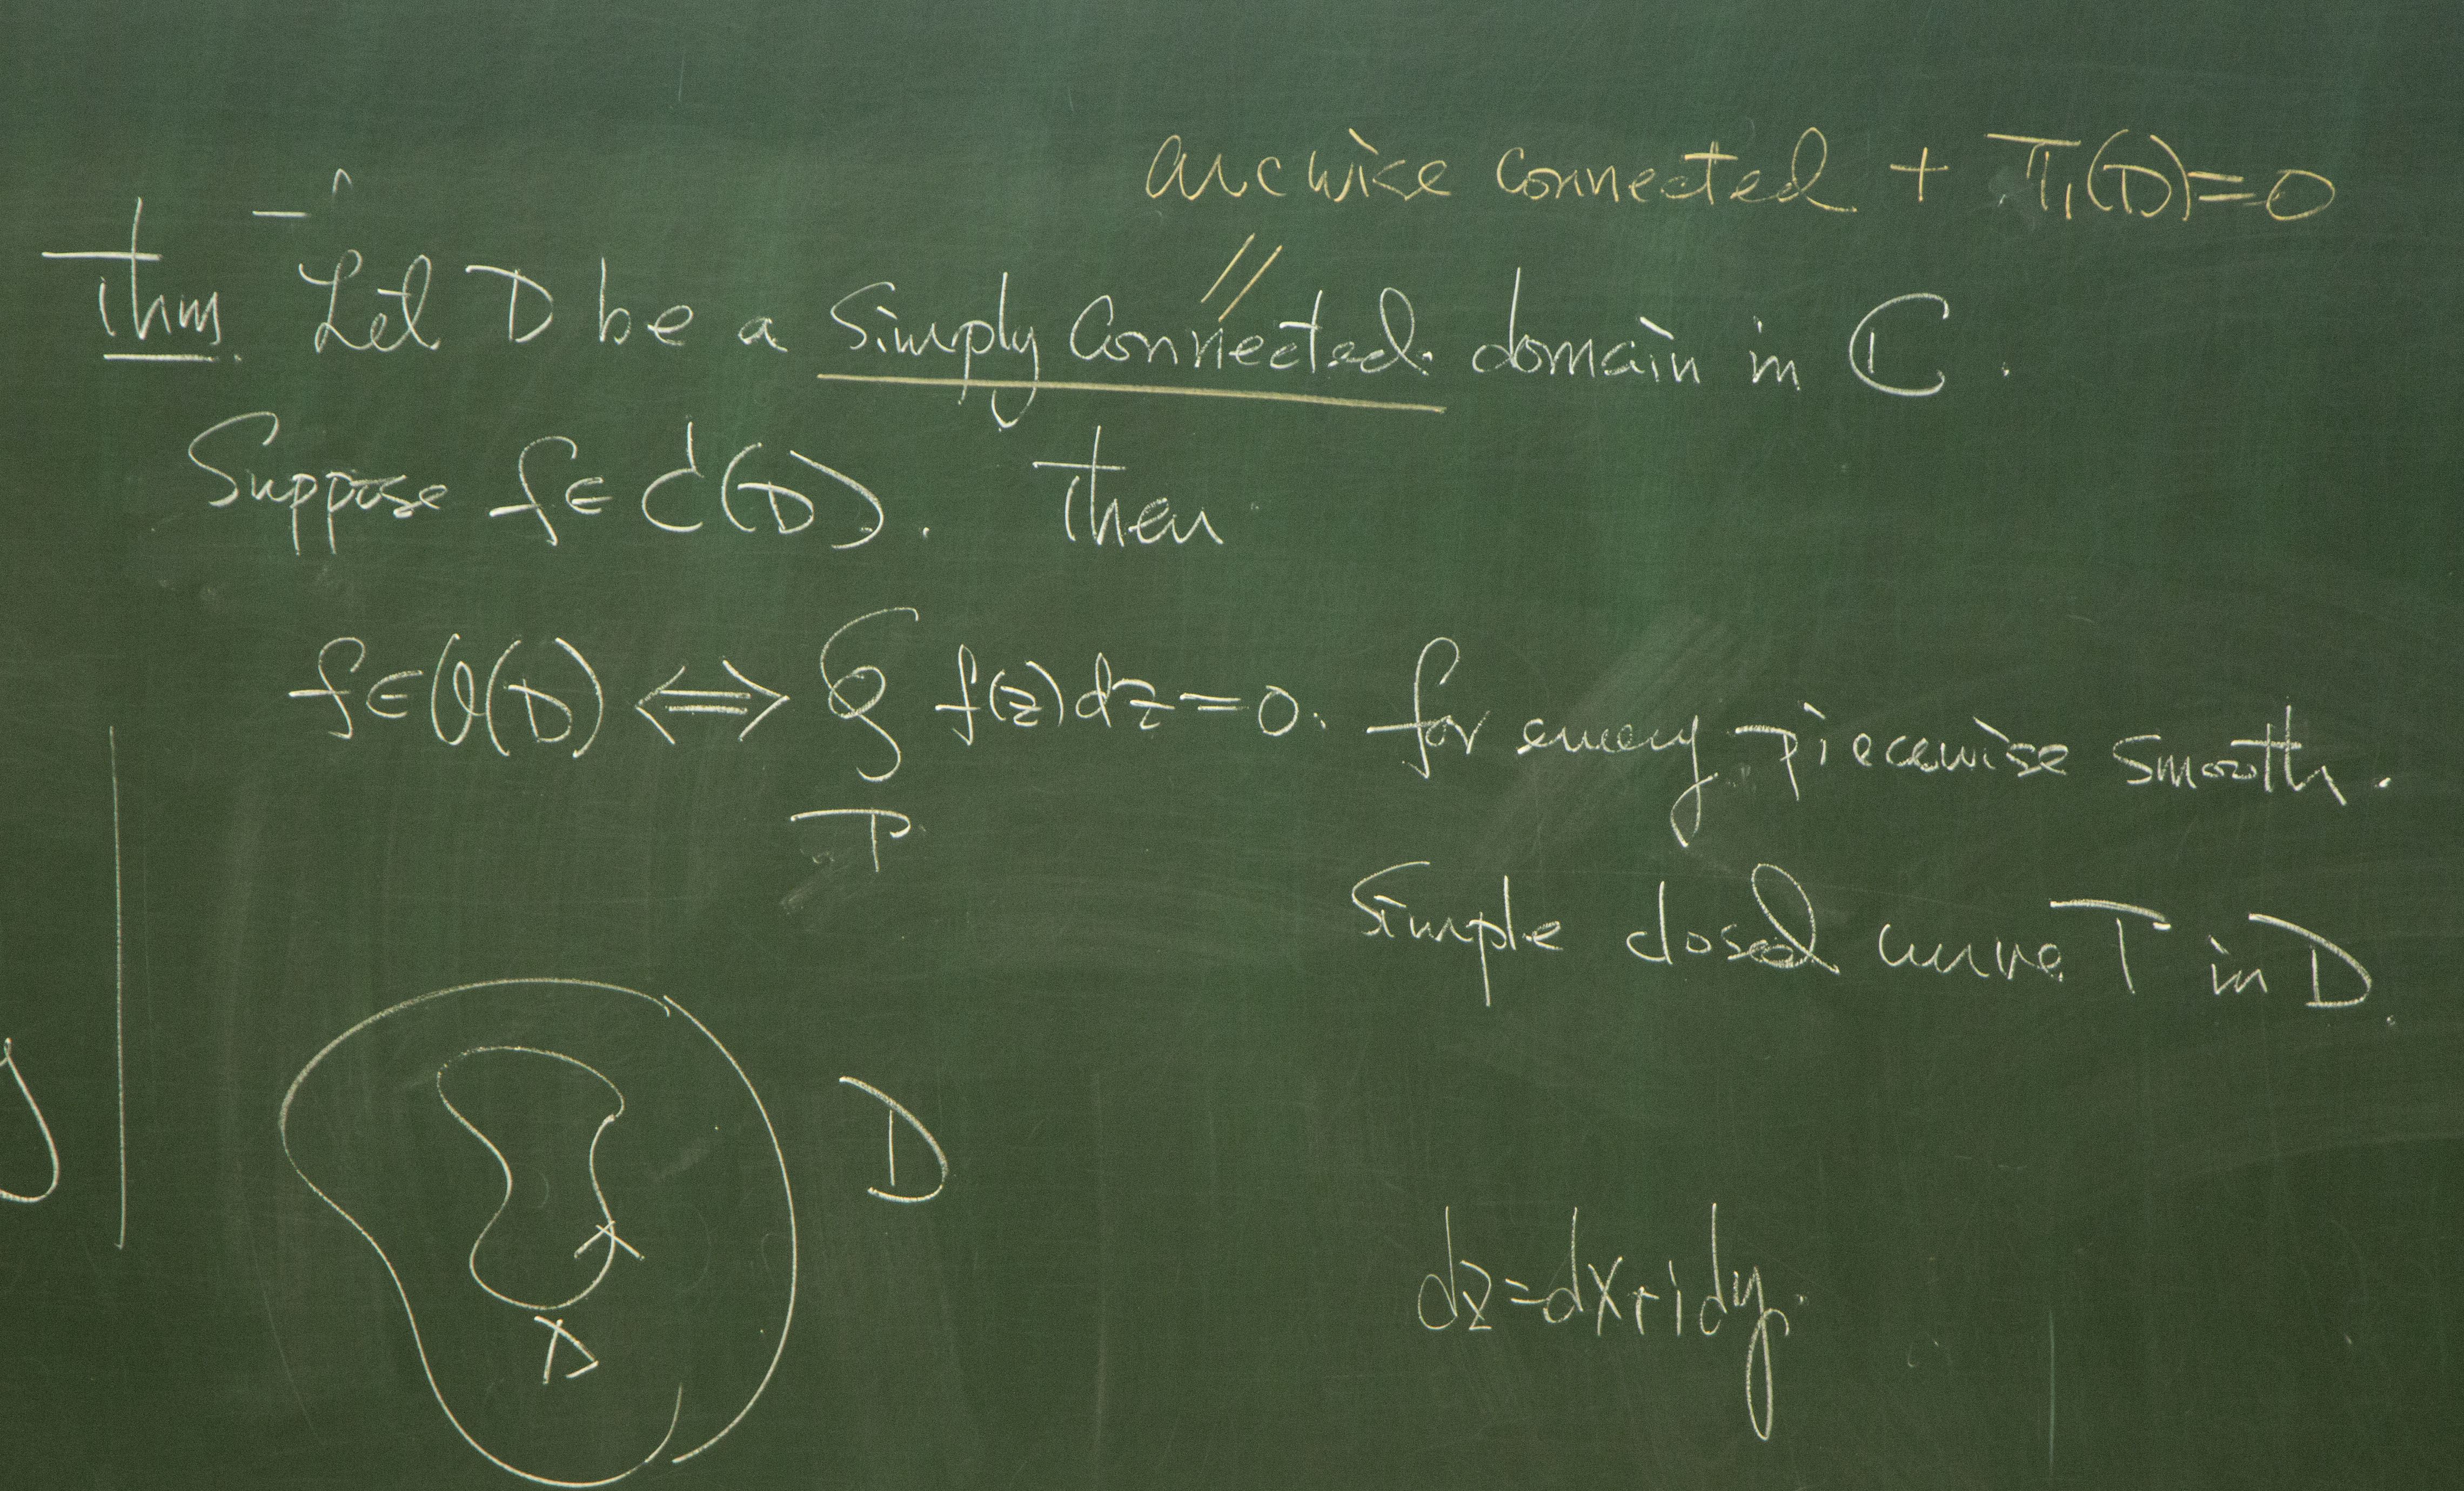 arcwise connected + π₁(D)=0
//
Thm. Let D be a simply connected domain in ℂ.
Suppose f∈C¹(D). Then
f∈O(D) ⟺ ∮ f(z)dz=0. for every piecewise smooth.
Γ
simple closed curve Γ in D.
D
D
dz=dx+idy.